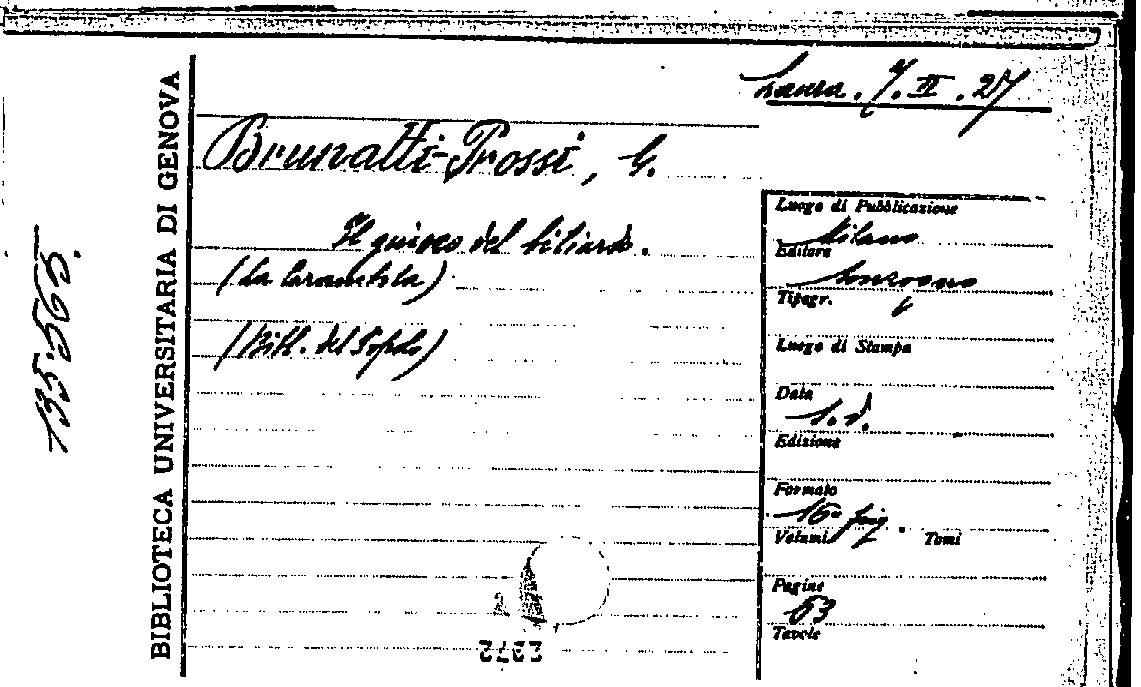 Lanza. 7. II. 27
BIBLIOTECA UNIVERSITARIA DI GENOVA
135565.
Brunatti-Prossi, G.
Il giuoco del biliardo.
(La Carambola)
(Bibl. del Popolo)
Luogo di Pubblicazione
Milano
Editore
Sonzogno
Tipogr.
Luogo di Stampa
Data
s.d.
Edizione
Formato
16° fig.
Volumi Tomi
Pagine
63
Tavole